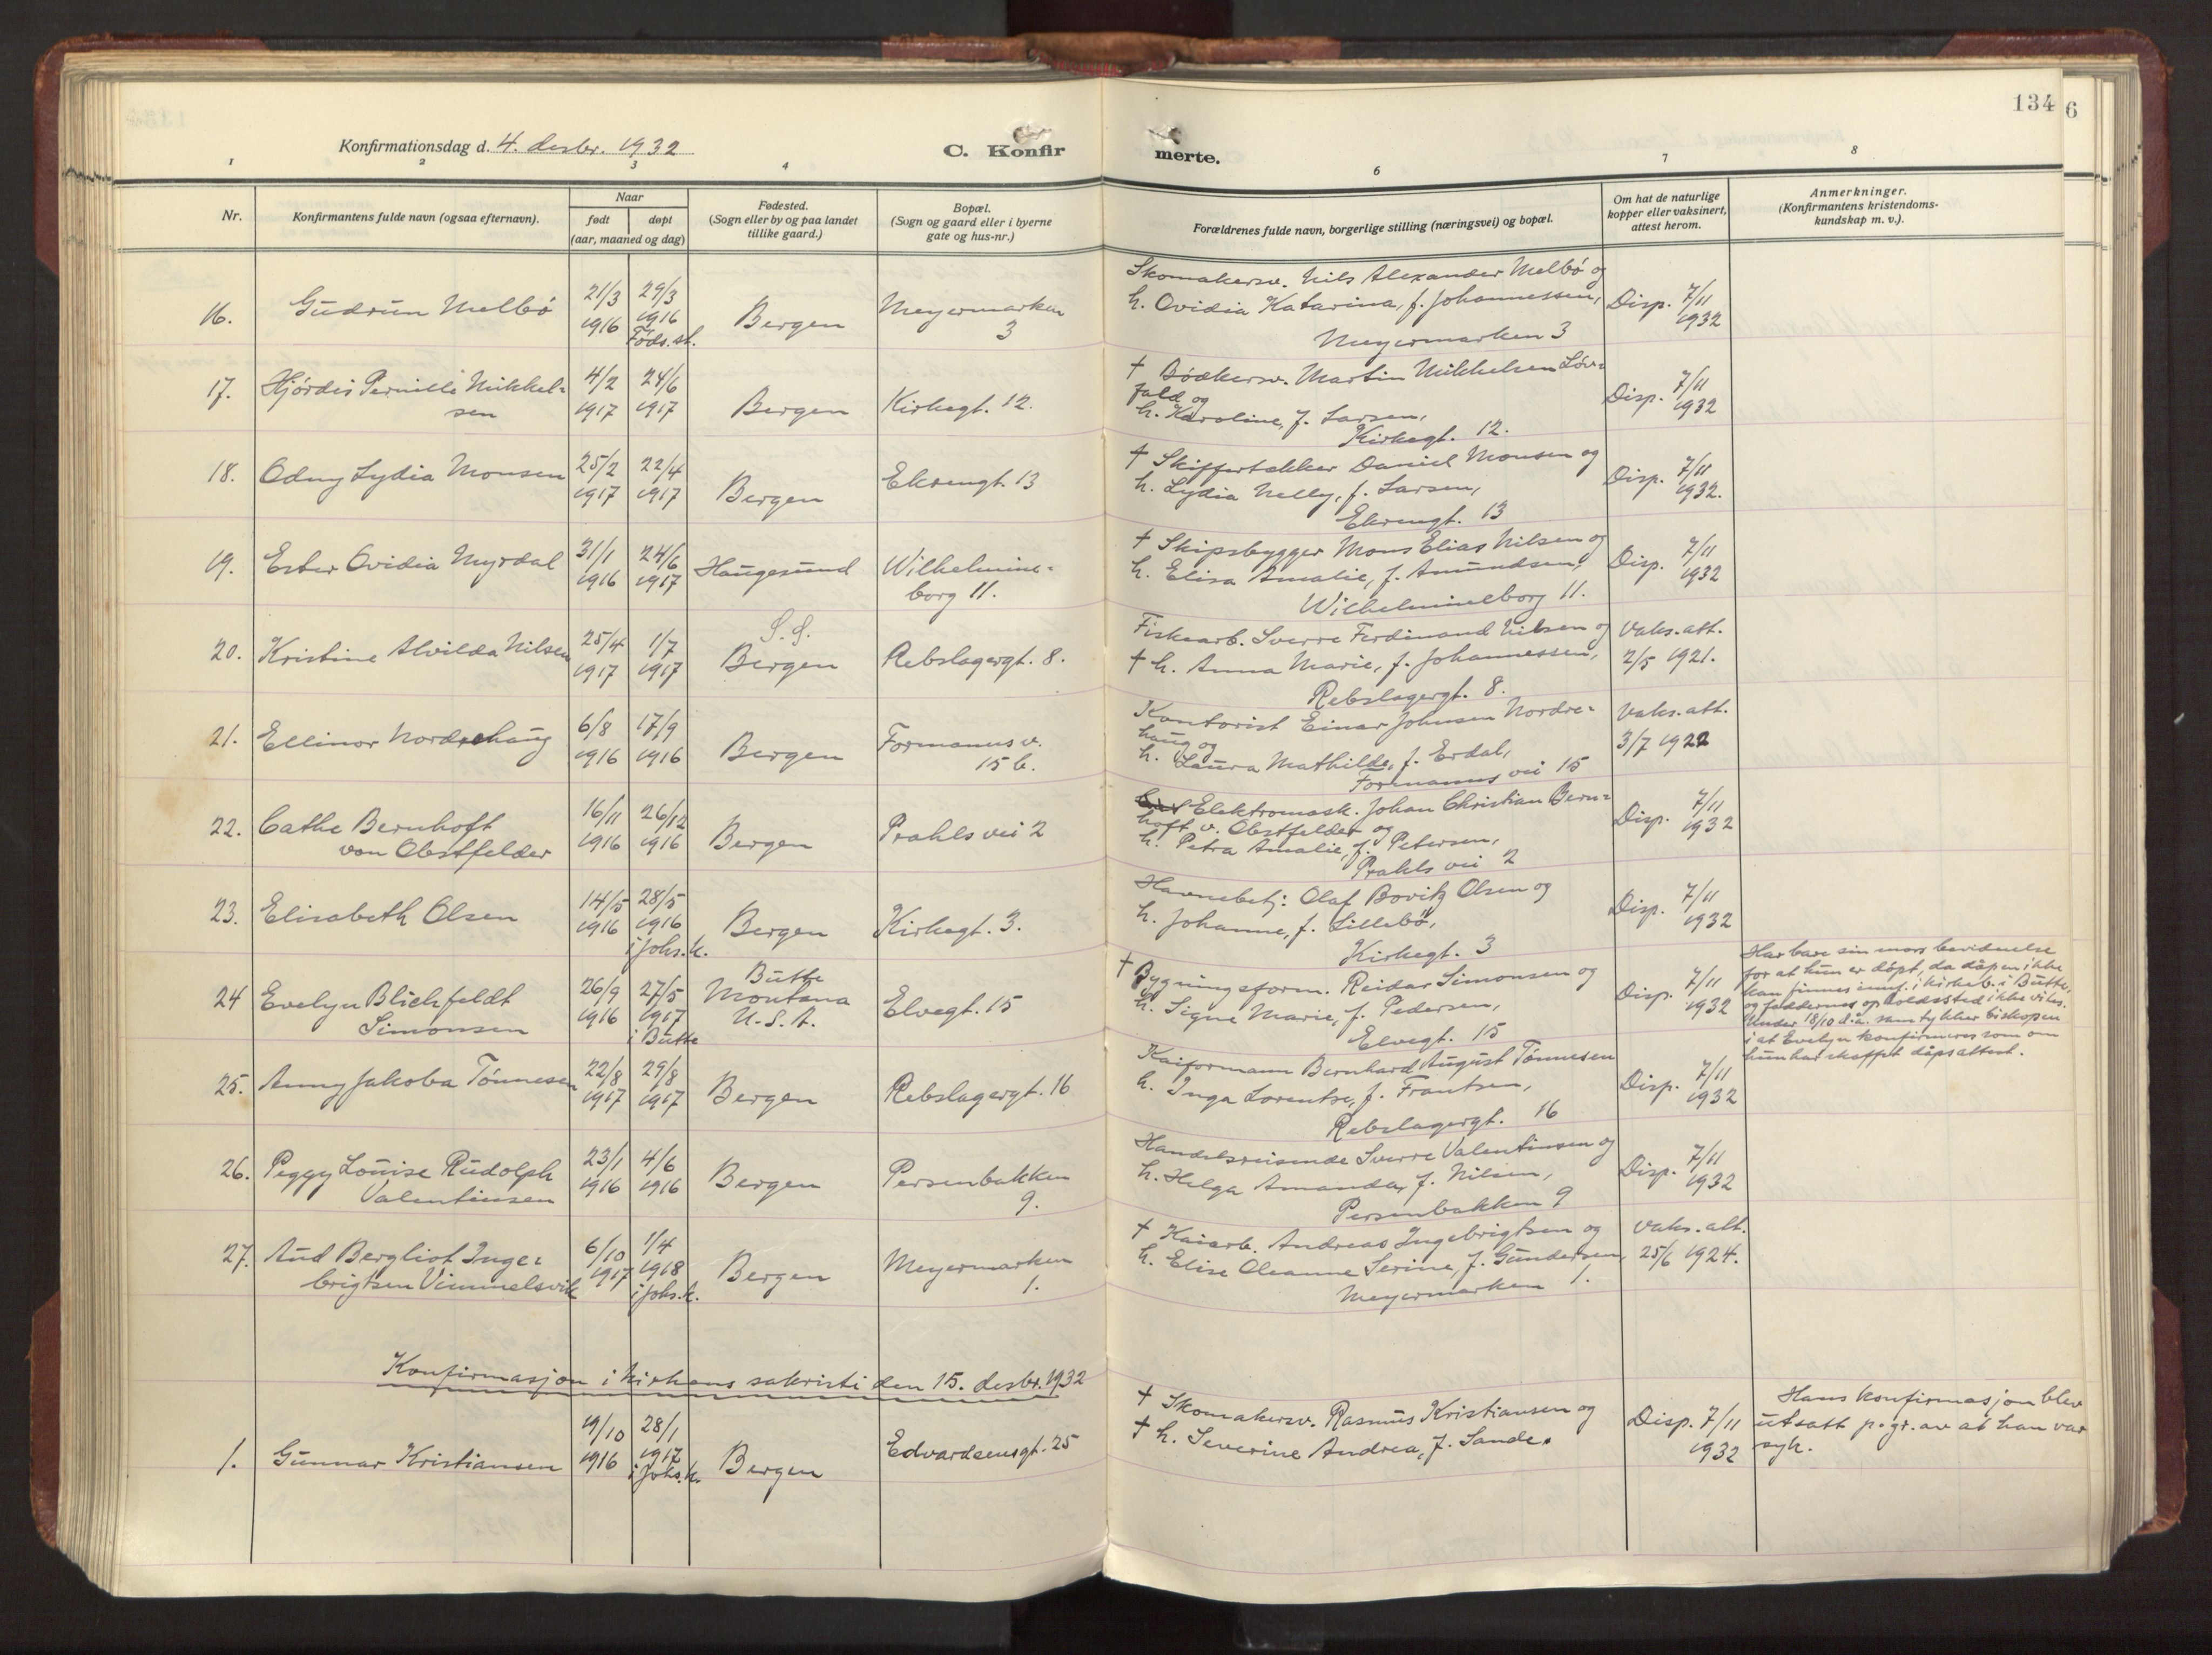 134
6
Konfirmationsdag d. 4. desbr. 1932
C. Konfirmerte.
1 2 3 4 6 7 8
Nr.
Konfirmantens fulde navn (ogsaa efternavn).
Naar
født
døpt
(aar, maaned og dag)
Fødested.
(Sogn eller by og paa landet
tillike gaard.)
Bopæl.
(Sogn og gaard eller i byerne
gate og hus-nr.)
Forældrenes fulde navn, borgerlige stilling (næringsvei) og bopæl.
Om hat de naturlige
kopper eller vaksinert,
attest herom.
Anmerkninger.
(Konfirmantens kristendoms-
kundskap m. v.).
16.
Gudrun Melbö
21/3
1916
29/3
1916
Föds.st.
Bergen
Meyermarken
3
Skomakersv. Nils Alexander Melbö og
h. Ovidia Katarina, f. Johannessen,
Meyermarken 3
Disp. 7/11
1932
17.
Hjördis Pernille Mikkel-
sen
4/2
1917
24/6
1917
Bergen
Kirkegt. 12.
† Bödkersv. Martin Mikkelsen Löv-
fald og
h. Karoline, f. Larsen,
Kirkegt. 12.
Disp. 7/11
1932
18.
Odny Lydia Monsen
25/2
1917
22/4
1917
Bergen
Ekrengt. 13
† Skiffertekker Daniel Monsen og
h. Lydia Nelly, f. Larsen,
Ekrengt. 13
Disp. 7/11
1932.
19.
Ester Ovidia Myrdal
31/1
1916
24/6
1917
Haugesund
Wilhelmine-
borg 11.
† Skipsbygger Mons Elias Nilsen og
h. Elisa Amalie, f. Amundsen,
Wilhelmineborg 11.
Disp. 7/11
1932
20.
Kristine Alvilda Nilsen
25/4
1917
1/7
1917
S.S.
Bergen
Rebslagergt. 8.
Fiskearb. Sverre Ferdinand Nilsen og
† h. Anna Marie, f. Johannessen,
Rebslagergt. 8.
Vaks. att.
2/5 1921.
21.
Ellinor Nordrehaug
6/8
1916
17/9
1916
Bergen
Formanns v.
15 b.
Kontorist Einar Johnsen Nordre-
haug og
h. Laura Mathilde, f. Erdal,
Formanns vei 15
Vaks. att.
3/7 1922
22.
Cathe Bernhoft
von Obstfelder
16/11
1916
26/12
1916
Bergen
Prahls vei 2
Elektromask. Johan Christian Bern-
hoft v. Obstfelder og
h. Petra Amalie, f. Petersen,
Prahls vei 2
Disp. 7/11
1932
23.
Elisabeth Olsen
14/5
1916
28/5
1916
i Johs. k.
Bergen
Kirkegt. 3.
Havnebetj: Olaf Bovitz Olsen og
h. Johanne, f. Lillebö,
Kirkegt. 3
Disp. 7/11
1932
24
Evelyn Blichfeldt
Simonsen
26/9
1916
27/5
1917
i Butte
Butte
Montana
U.S.A.
Elvegt. 15
† Bygningsform. Reidar Simonsen og
h. Signe Marie, f. Pedersen,
Elvegt. 15
Disp. 7/11
1932
Har bare sin mors bevidnelse
for at hun er döpt, da dåpen ikke
kan finnes innf. i kirkeb. i Butte,
og faddernes opholdssted ikke vites.
Under 18/10 d.å. samtykker biskopen
i at Evelyn konfirmeres som om
hun har skaffet dåpsattest.
25.
Anny Jakoba Tönnesen
22/8
1917
29/8
1917
Bergen
Rebslagergt. 16
Kaiformann Bernhard August Tönnesen
h. Inga Lorentse, f. Frantsen,
Rebslagergt. 16
Disp. 7/11
1932
26.
Peggy Louise Rudolph
Valentinsen
23/1
1916
4/6
1916
Bergen
Persenbakken
9.
Handelsreisende Sverre Valentinsen og
h. Helga Amanda, f. Nilsen,
Persenbakken 9
Disp. 7/11
1932
27.
Aud Bergliot Inge-
brigtsen Vimmelsvik
6/10
1917
1/4
1918
i Johs. k.
Bergen
Meyermarken
1.
† Kaiarb. Andreas Ingebrigtsen og
h. Elise Oleanne Serine, f. Gundersen,
Meyermarken 1.
Vaks. att.
25/6 1924.
Konfirmasjon i kirkens sakristi den 15. desbr. 1932
1.
Gunnar Kristiansen
19/10
1916
28/1
1917
i Johs. k.
Bergen
Edvardsensgt. 25
† Skomakersv. Rasmus Kristiansen og
† h. Severine Andrea, f. Sande.
Disp. 7/11
1932
Hans konfirmasjon blev
utsatt p. gr. av at han var
syk.